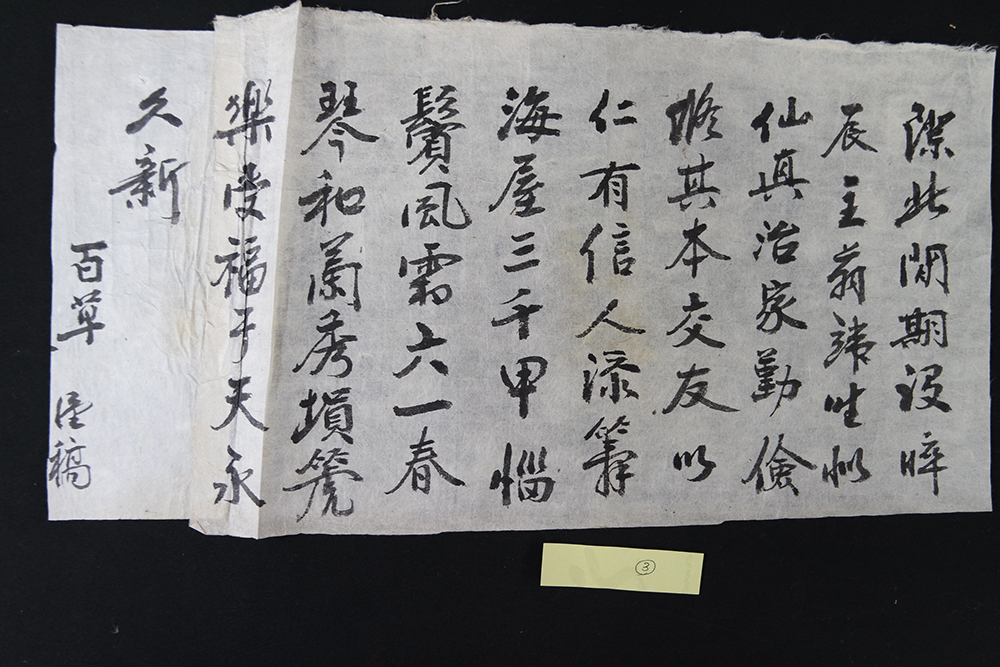 際此閏期設晬
辰主翁諱似
仙真治家勤儉
修其本交友以
仁有信人添筭
海屋三千甲惱
鬢風霜六一春
琴和蘭秀塤篪
樂受福于天永
久新
百草 稿
③